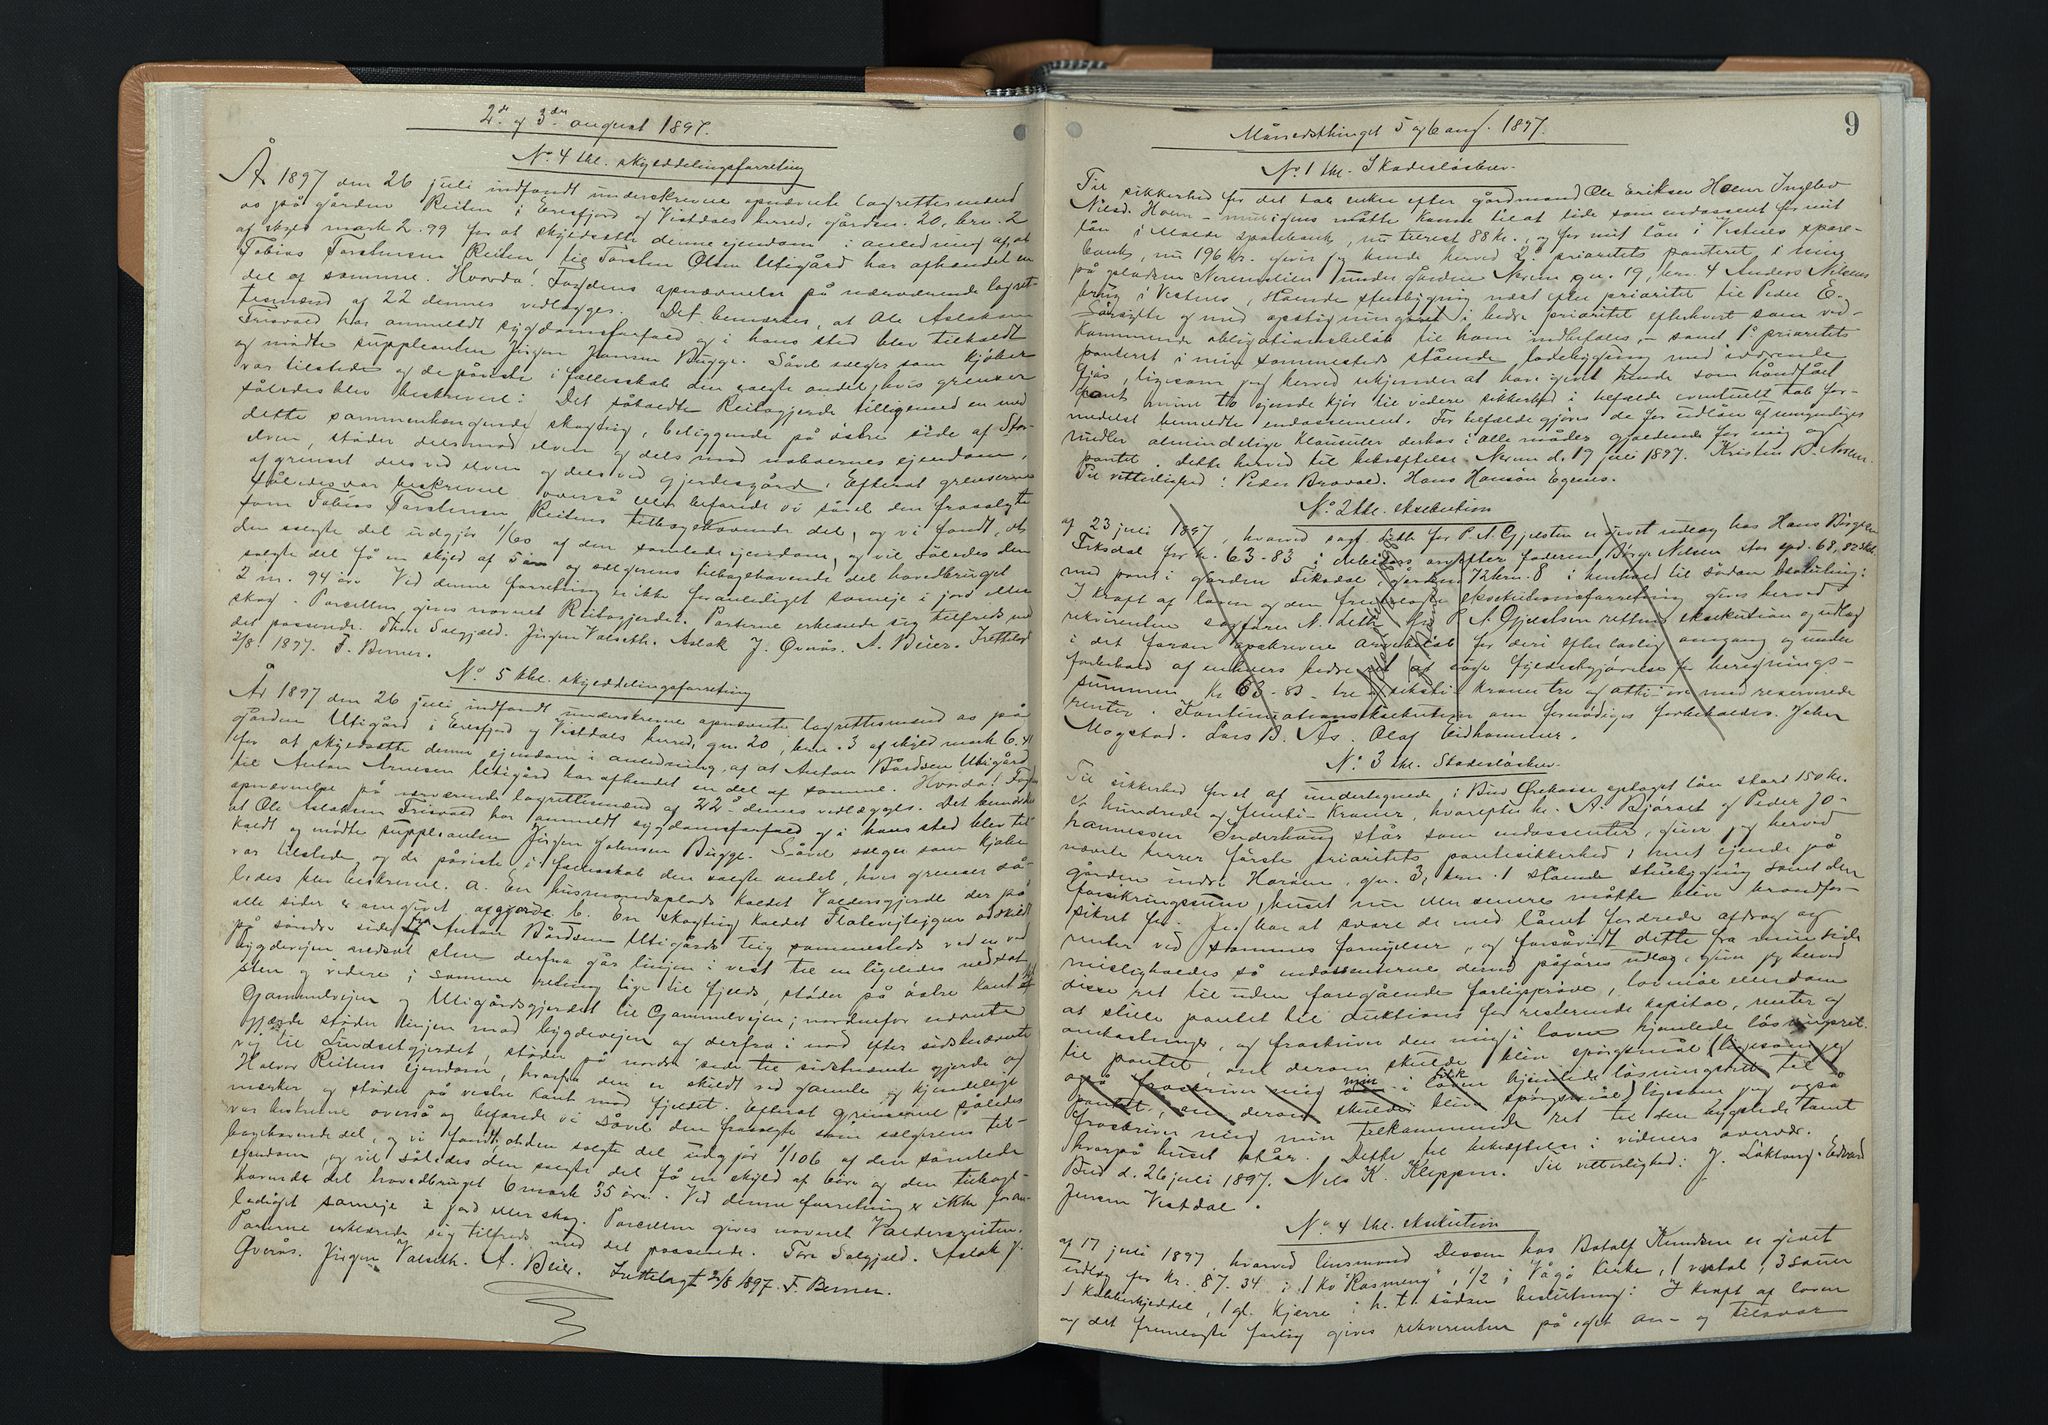 2den og 3die august 1897.
No. 4 thl. skylddelingsforretning
År 1897 den 26 juli indfandt underskrevne opnævnte lagrettesmænd
os på gården Reiten i Eresfjord og Vistdals herred, gårdsn. 20, brn. 2
af skyld mark 2.99 for at skyldsætte denne ejendom i anledning af, at
Tobias Torstensen Reiten til Torsten Olsen Utigård har afhændet en
del af samme. Hvorda! Fogdens opnævnelse på nærværende lagret-
tesmænd af 22 dennes vedlægges. Det bemærkes, at Ole Aslaksen
Frisvold har anmeldt sygdomsforfald og i hans sted blev tilkaldt
og mødte suppleanten Jørgen Jansen Bugge. Såvel sælger som kjøber
var tilstede og de påviste i fællesskab den solgte andel, hvis grænser
således blev beskrevne: Det såkaldte Reitagjerde tilligemed en med
dette sammenhængende skogteig, beliggende på östre side af Stor-
elven, støder dels mod elven og dels mod naboernes ejendom,
afgrænset dels ved elven og dels ved gjerdesgård. Efterat grænserne
således var beskrevne overså eller befarede vi såvel den frasolgte
som Tobias Torstensen Reitens tilbagehavende del, og vi fandt, at
den solgte del udgjør 1/60 af den samlede ejendom, og vil således den
solgte del få en skyld af 5 øre og sælgerens tilbagehavende del hovedbruget
2 m. 94 øre Ved denne forretning er ikke foranlediget sameje i jord eller
skog. Parcellen gives navnet Reitagjerdet. Parterne erklærede sig tilfreds med
det passende. Thore Solgjeld. Jørgen Valseth. Aslak J. Øverås. A. Beier. Fremlagt
2/8. 1897. F. Berner.
No. 5 thl. skylddelingsforretning
År 1897 den 26 juli indfandt underskrevne opnævnte lagrettesmænd os på
gården Utigård i Eresfjord og Vistdals herred, gn. 20, brn. 3 af skyld mark 6.41
for at skyldsætte denne ejendom i anledning af at Anton Bårdsen Utigård
til Anton Arnesen Utigård har afhændet en del af samme. Hvorda! Fogdens
opnævnelse på nærværende lagrettesmænd af 22 dennes vedlægges. Det bemærkes
at Ole Aslaksen Frisvold har anmeldt sygdomsforfald og i hans sted blev til-
kaldt og mødte suppleanten Jørgen Johnsen Bugge. Såvel sælger som kjøber
var tilstede og de påviste i fællesskab den solgte andel, hvis grænser så-
ledes blev beskrevne. a. En husmandsplads kaldet Valdersgjerde der på
alle sider er omgivet afgjerde b. En skogteig kaldet Flateneteigen adskildt
på søndre side fra Anton Bårdsen Utigårds teig sammesteds ved en ved
bygdevejen nedsat sten derfra går linjen i vest til en ligeledes nedsat
sten og videre i samme retning lige til fjelds, støder på östre kant til
Gammelvejen og Utigårdsgjerdet til Gammelvejen; nordenfor nævnte
gjærde støder linjen mod bygdevejen og derfra i nord efter sidstnævnte
vej til Lindsetgjerdet, støder på nordre side til sidstnævnte gjerde og
Halvor Reitens ejendom, hvorfra den er skildt ved gamle og kjendelige
mærker og støder på vestre kant mod fjeldet. Efterat grænserne således
var beskrevne overså og befarede vi såvel den frasolgte som sælgerens til-
bagehavende del, og vi fandt, at den solgte del udgjør 1/106 af den samlede
ejendom og vil således den solgte del få en skyld af 6 øre og den tilbage-
havende del hovedbruget 6 mark 35 øre. Ved denne forretning er ikke foran-
lediget sameje i jord eller skog. Parcellen gives navnet Valdersgjerdet.
Parterne erklærede sig tilfreds med det passende. Tore Solgjeld. Aslak J.
Øverås. Jørgen Valseth. A. Beier. Fremlagt 2/8 1897. F. Berner.
9
Månedsthinget 5 og 6 aug. 1897.
No. 1 thl. Skadesløsbrev.
Til sikkerhed for det tab enken efter gårdmand Ole Eriksen Hoem Ingeborg
Nilsd. Hoem muligens måtte komme til at lide som endossent for mit
lån i Molde sparebank, nu tilrest 88 kr., og for mit lån i Vestnes spare-
bank, nu 196 kr. giver jeg hende herved 2. prioritets panteret i min
på pladsen Neremslien under gården Nerem gn. 19, brn. 4 Anders Nilsens
brug i Vestnes, stående stuebygning næst efter prioritet til Peder E.
Sørsylte og med opstigningsret i bedre prioritet efterhvert som ved-
kommende obligationsbeløb til ham indbetales, samt 1. prioritets
panteret i min sammesteds stående ladebygning med iværende
fjøs, ligesom jeg herved erkjender at have givet hende som håndfået
pant mine to ejende kjør til videre sikkerhed i befalde eventuelt tab for-
medelst benævnte endossement. For befalde gjøres de for udlån af umyndiges
midler almindelige klausuler derhos i alle måder gjældende for mig og
pantet. Dette herved til bekræftelse Nerem d. 17 juli 1897. Kristen B. Nerem.
Til vitterlighed: Peder Bravold. Hans Hansen Egenes.
No. 2 thl. eksekution
af 23 juli 1897, hvorved sagf. Dett for P. A. Gjelsten er givet udlæg hos Hans Børgesen
Tiksdal for kr. 63-83 i debitors arv efter faderen Børge Nilsen stor spd. 68, 82 skl.
med pant i gården Tiksdal, gården 72 brn. 8 i henhold til sådan beslutning:
I kraft af loven og den fremlagte eksekutionsforretning gives herved
rekvirenten sagfører N. Dett for P. A. Gjelstsen rettens eksekution og udlæg
i det foran beskrevne arvebeløb for deri efter lovlig omgang og under
forbehold af enhvers bedre ret at søge fyldestgjørelse for beregnings-
summen kr. 63-83 tre og seksti kroner tre og otti øre med reserverede
renter. Kontinuationseksekution om fornødiges forbeholdes. John
Mogstad. Lars B. Ås. Olaf Eidhammer.
No. 3 thl. Skadesløsbrev
Til sikkerhed for et af undertegnede i Bud Ørekasse optaget lån stort 150 kr.
et hundrede og femti kroner, hvorefter hr. A. Bjørset og Peder Jo-
hannessen Inderhaug står som endossenter, giver jeg herved
nævnte herrer første prioritets pantesikkerhed i mit ejende på
gården indre Harøen, gn. 3, brn. 1 stående stuebygning samt den
forsikringssum, huset nu eller senere måtte blive brandfor-
sikret for. Jeg har at svare de med lånet fordrede afdrag og
renter ved sammes fornyelser, og forsåvidt dette fra min side
misligholdes så endossenterne derved påføres udlæg, giver jeg herved
disse ret til uden foregående forligsprøve, lovmål eller dom
at stille pantet til auktion for resterende kapital, renter og
omkostninger, og fraskriver den mig i loven hjemlede løsningsret
til pantet, om derom skulde blive spørgsmål (ligesom jeg
også fraskriver mig min i loven hjemlede løsningsret til
pantet, om derom skulde blive spørgsmål) ligesom jeg også
fraskriver mig min tilkommende ret til den bygslede tomt
hvorpå huset står. Dette til bekræftelse i vidners overvær.
Bud d. 26 juli 1897. Nils K. Kleppen. Til vitterlighed: J. Løkhaug. Edvard
Jensen Vestdal.
No. 4 thl. eksekution
af 17 juli 1897, hvorved lensmand Dessen hos Botolf Knudsen er givet
udlæg for kr. 87.34 i 1 ko "Rosmeng", 1/2 i Vågø kirke, 1 vestol, 3 sauer
1 kobberkjeddel, 1 gl. kjerre i h. t. sådan beslutning: I kraft af loven
og det fremlagte forlig gives rekvirenten på eget an- og tilsvar